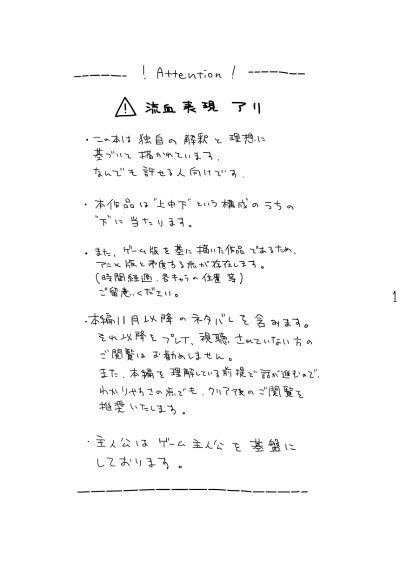 ! Attention !
⚠ 流血表現 アリ
・この本は独自の解釈と理想に
基づいて描かれています。
なんでも許せる人向けです。
・本作品は"上中下"という構成のうちの
"下"に当たります。
・また、ゲーム版を基に描いた作品であるため、
アニメ版と矛盾する点が存在します。
(時間経過、各キャラの位置 等)
ご留意ください。
・本編11月以降のネタバレを含みます。
それ以降をプレイ、視聴されていない方の
ご閲覧はお勧めしません。
また、本編を理解している前提で話が進むので、
わかりやすさの点でも、クリア後のご閲覧を
推奨いたします。
・主人公はゲーム主人公を基盤に
しております。
1